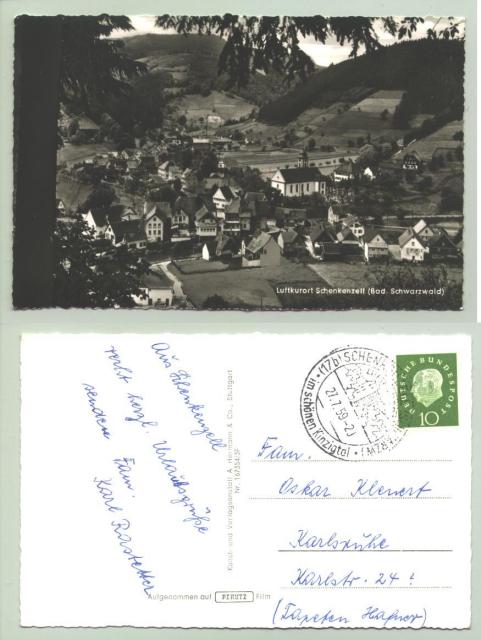 Luftkurort Schenkenzell (Bad. Schwarzwald)
Aus Schenkenzell
recht herzl. Urlaubsgrüße
senden Fam.
Karl Rastetter
Kunst- und Verlagsanstalt A. Hermann & Co., Stuttgart
Nr.
Aufgenommen auf PERUTZ Film
(17b) SCHEN
27.7.59
im schönen Kinzigtal
(SCHWARZW)
DEUTSCHE BUNDESPOST
10
Fam.
Oskar Klenert
Karlsruhe
Karlstr. 24 !
(Tapeten Hafner)